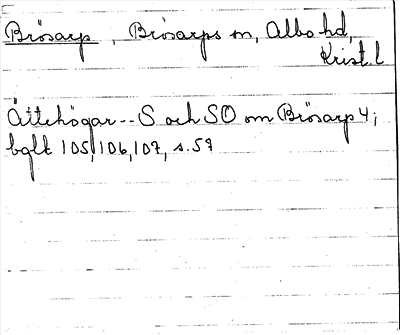 Brösarp, Brösarps sn, Albo hd,
Krist. l
Ättehögar -- S och SO om Brösarp 4;
bglt 105, 106, 107, s. 59